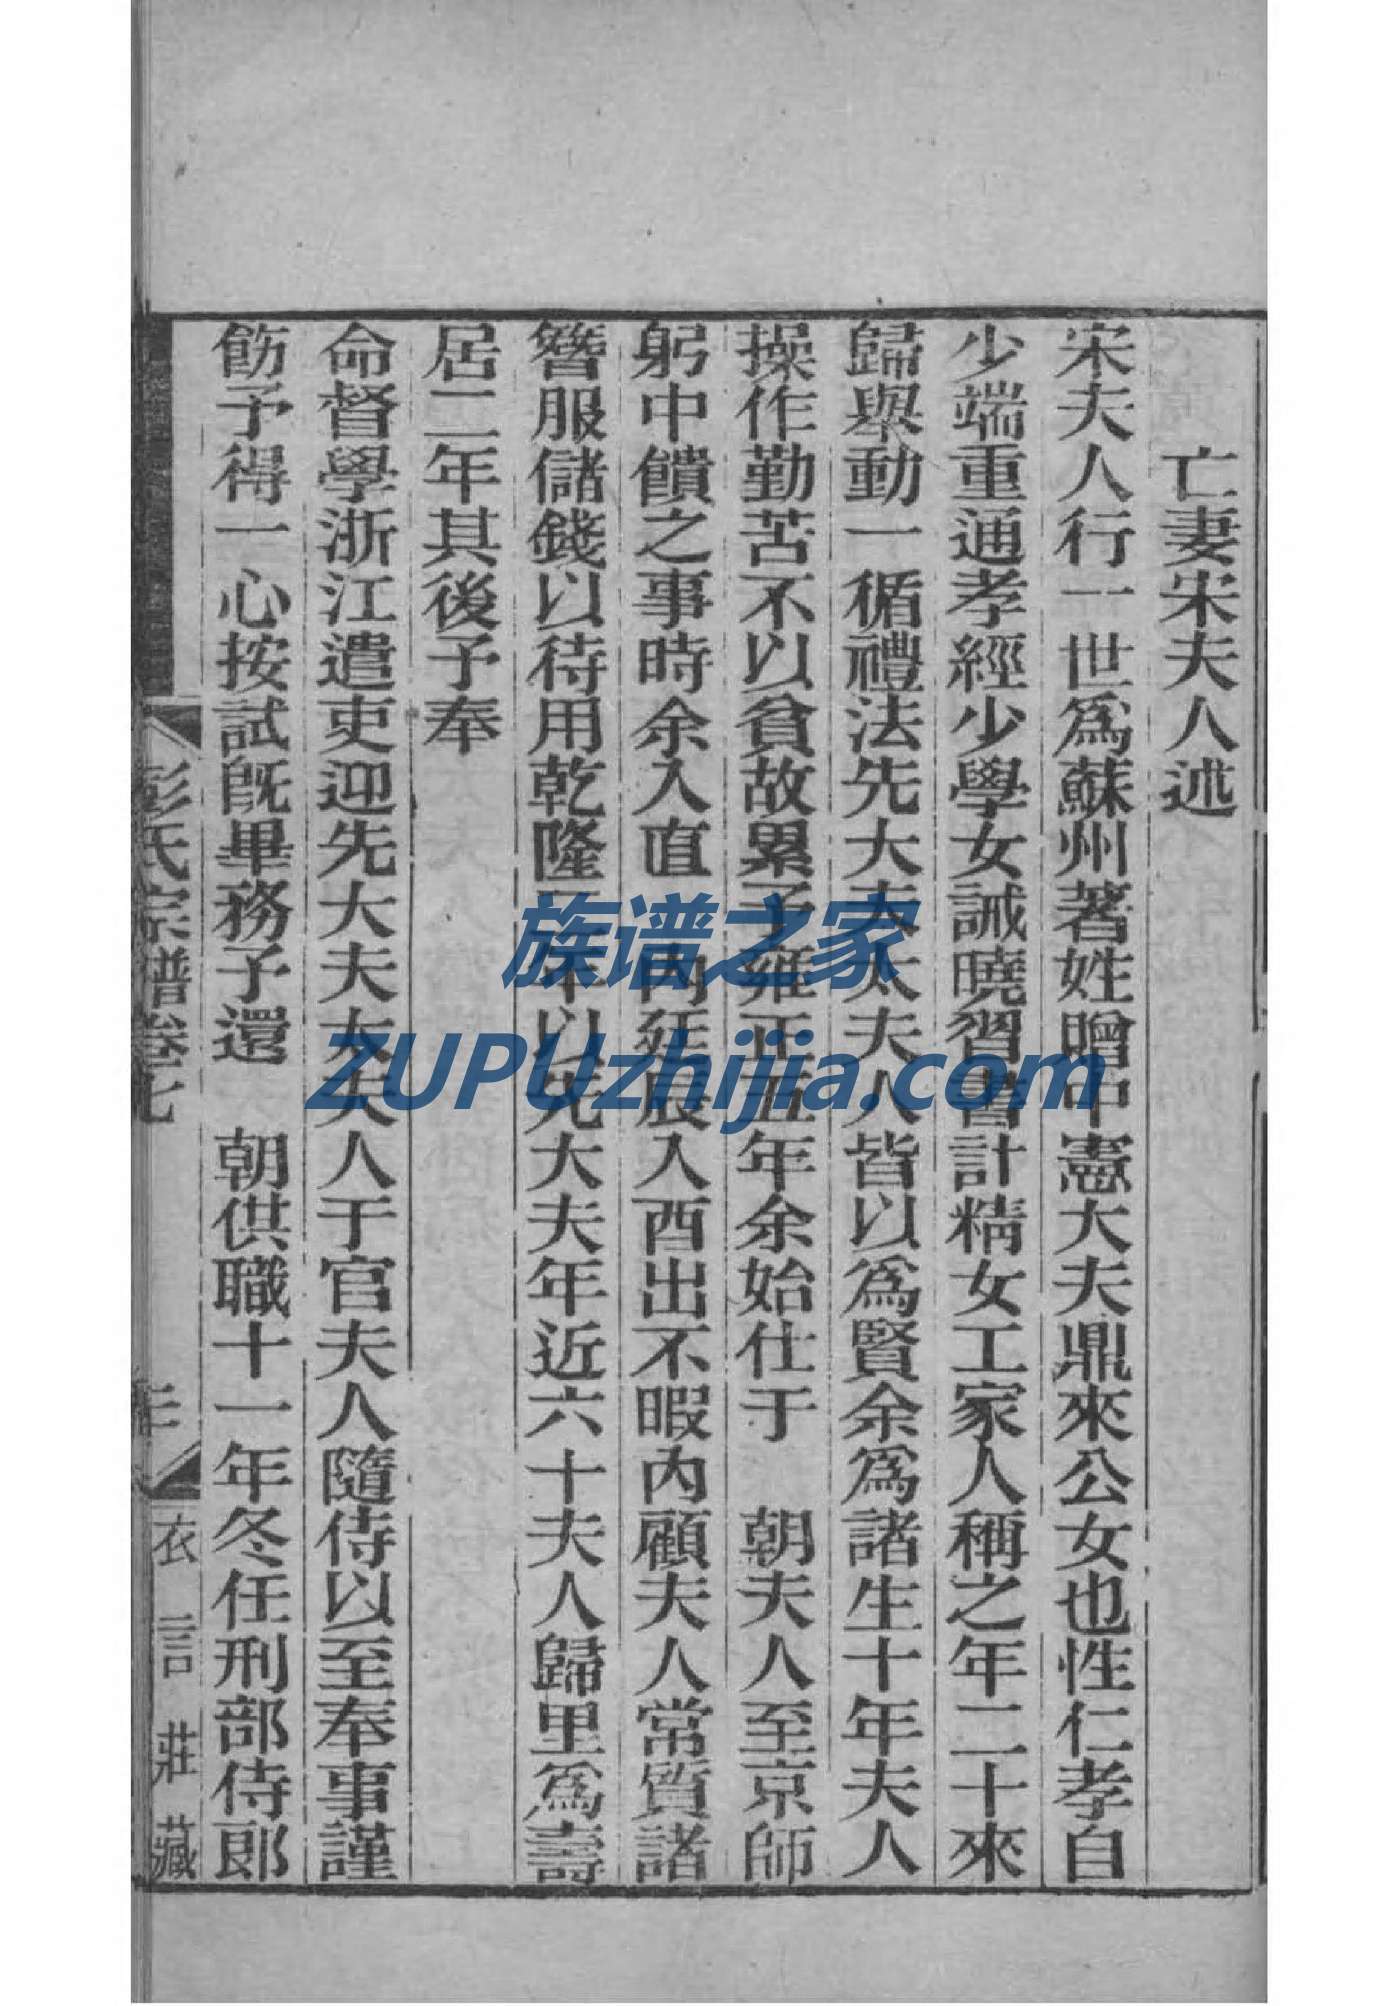 亡妻宋夫人述
宋夫人行一世爲蘇州著姓贈中憲大夫鼎來公女也性仁孝自
少端重通孝經少學女誡曉習書計精女工家人稱之年二十來
歸舉動一循禮法先大夫太夫人皆以爲賢余爲諸生十年夫人
操作勤苦不以貧故累予雍正五年余始仕于 朝夫人至京師
躬中饋之事時余入直 內廷辰入酉出不暇內顧夫人常質諸
簪服儲錢以待用乾隆 年以先大夫年近六十夫人歸里爲壽
居二年其後予奉
命督學浙江遣吏迎先大夫太夫人于官夫人隨侍以至奉事謹
飭予得一心按試旣畢務予還 朝供職十一年冬任刑部侍郎
彭氏宗譜卷七
衣言莊藏
族谱之家
ZUPUzhijia.com